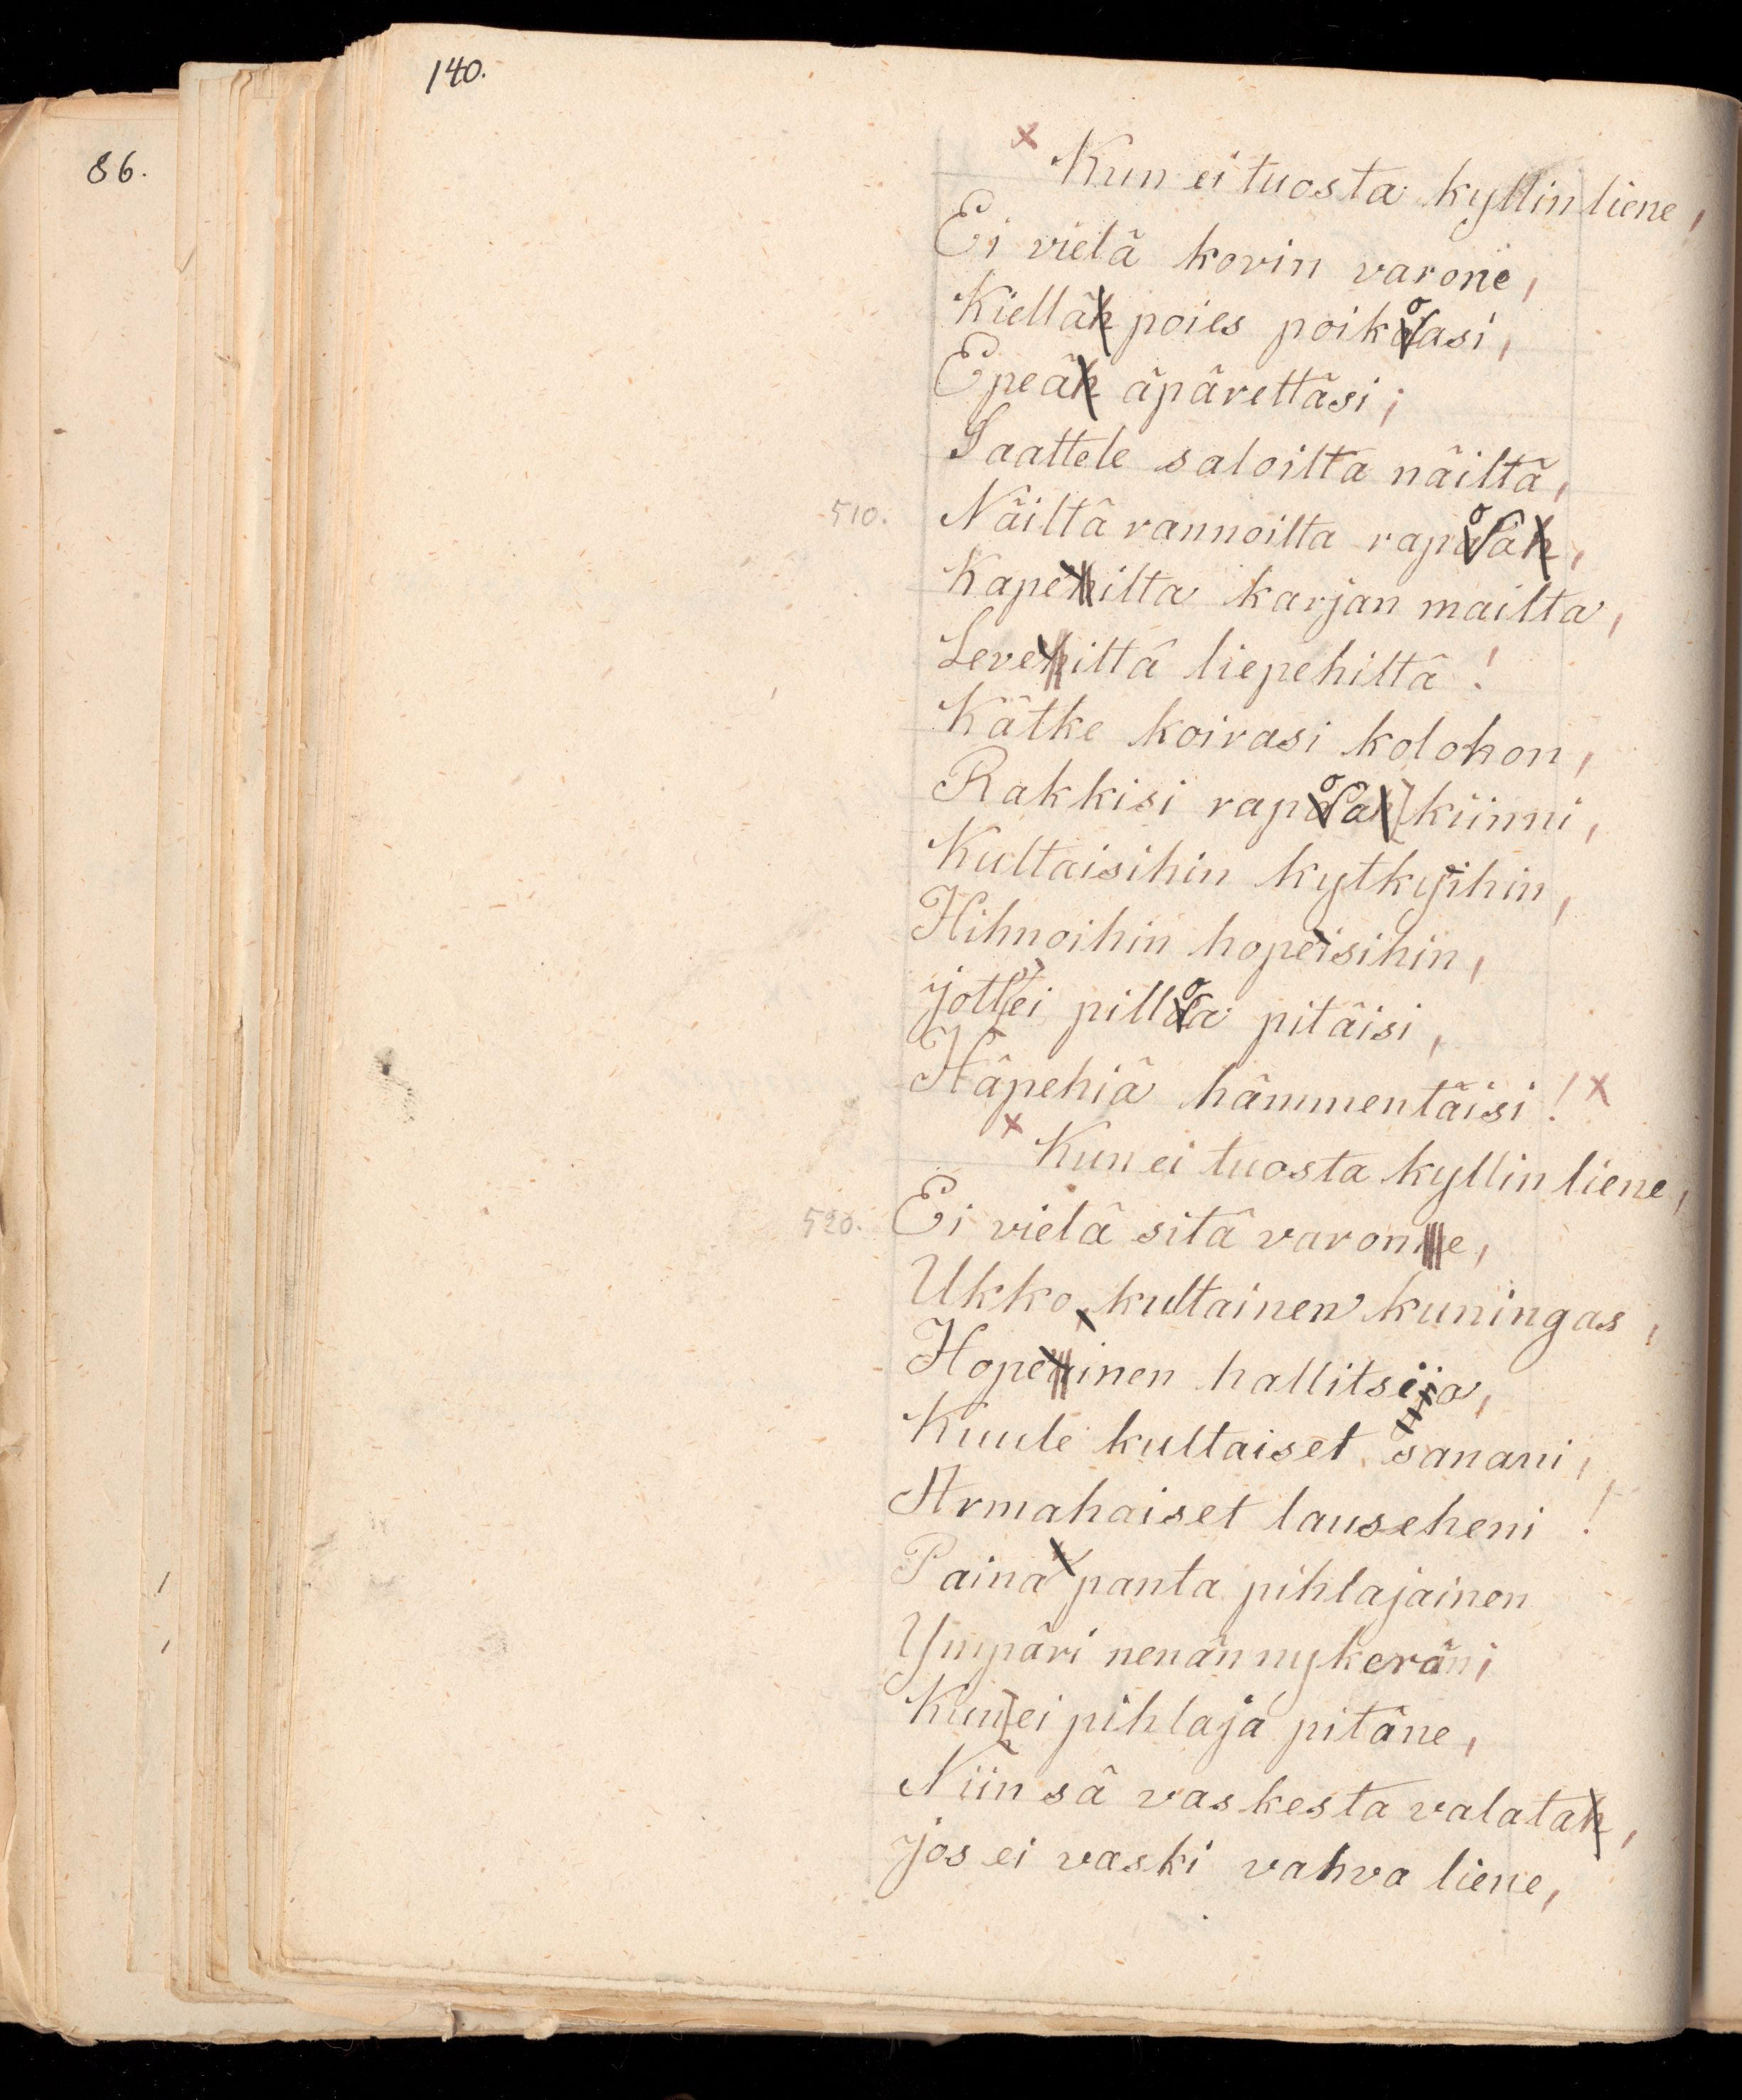 140.
86.
Kun ei tuosta kyllin liene,
Ei vielä kovin varone,
Kiellä poies poikoasi,
Epeä äpärettäsi;
Saattele saloilta näiltä,
510. Näiltä rannoilta rapoa,
Kapeilta karjan mailta,
Leveiltä liepehiltä!
Kätke koirasi kolohon,
Rakkisi rapoa kiinni,
Kultaisihin kytkyihin,
Hihnoihin hopeisihin,
Jott'ei pilloa pitäisi,
Häpehiä hämmentäisi!
Kun ei tuosta kyllin liene,
520. Ei vielä sitä varone,
Ukko kultainen kuningas,
Hopeinen hallitsija,
Kuule kultaiset sanani,
Armahaiset lauseheni!
Paina panta pihlajainen
Ympäri nenän nykerän;
Kun ei pihlaja pitäne,
Niin sä vaskesta valata,
Jos ei vaski vahva liene,